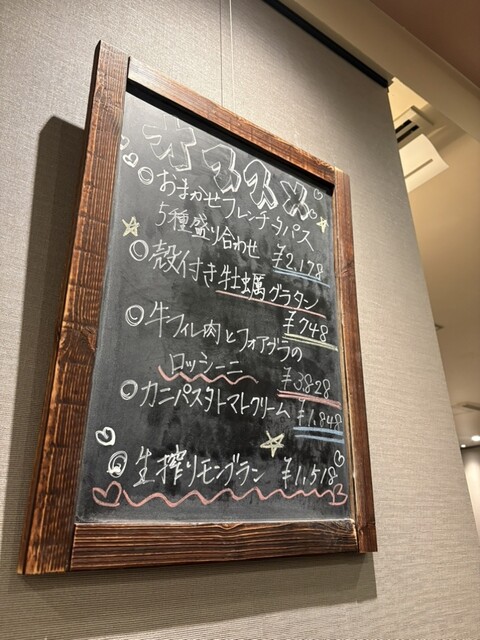 オススメ
◎おまかせフレンチタパス
5種盛り合わせ ¥2,178
◎殻付き牡蠣グラタン
¥748
◎牛フィレ肉とフォアグラの
ロッシーニ ¥3,828
◎カニパスタトマトクリーム ¥1,848
◎生搾りモンブラン ¥1,518